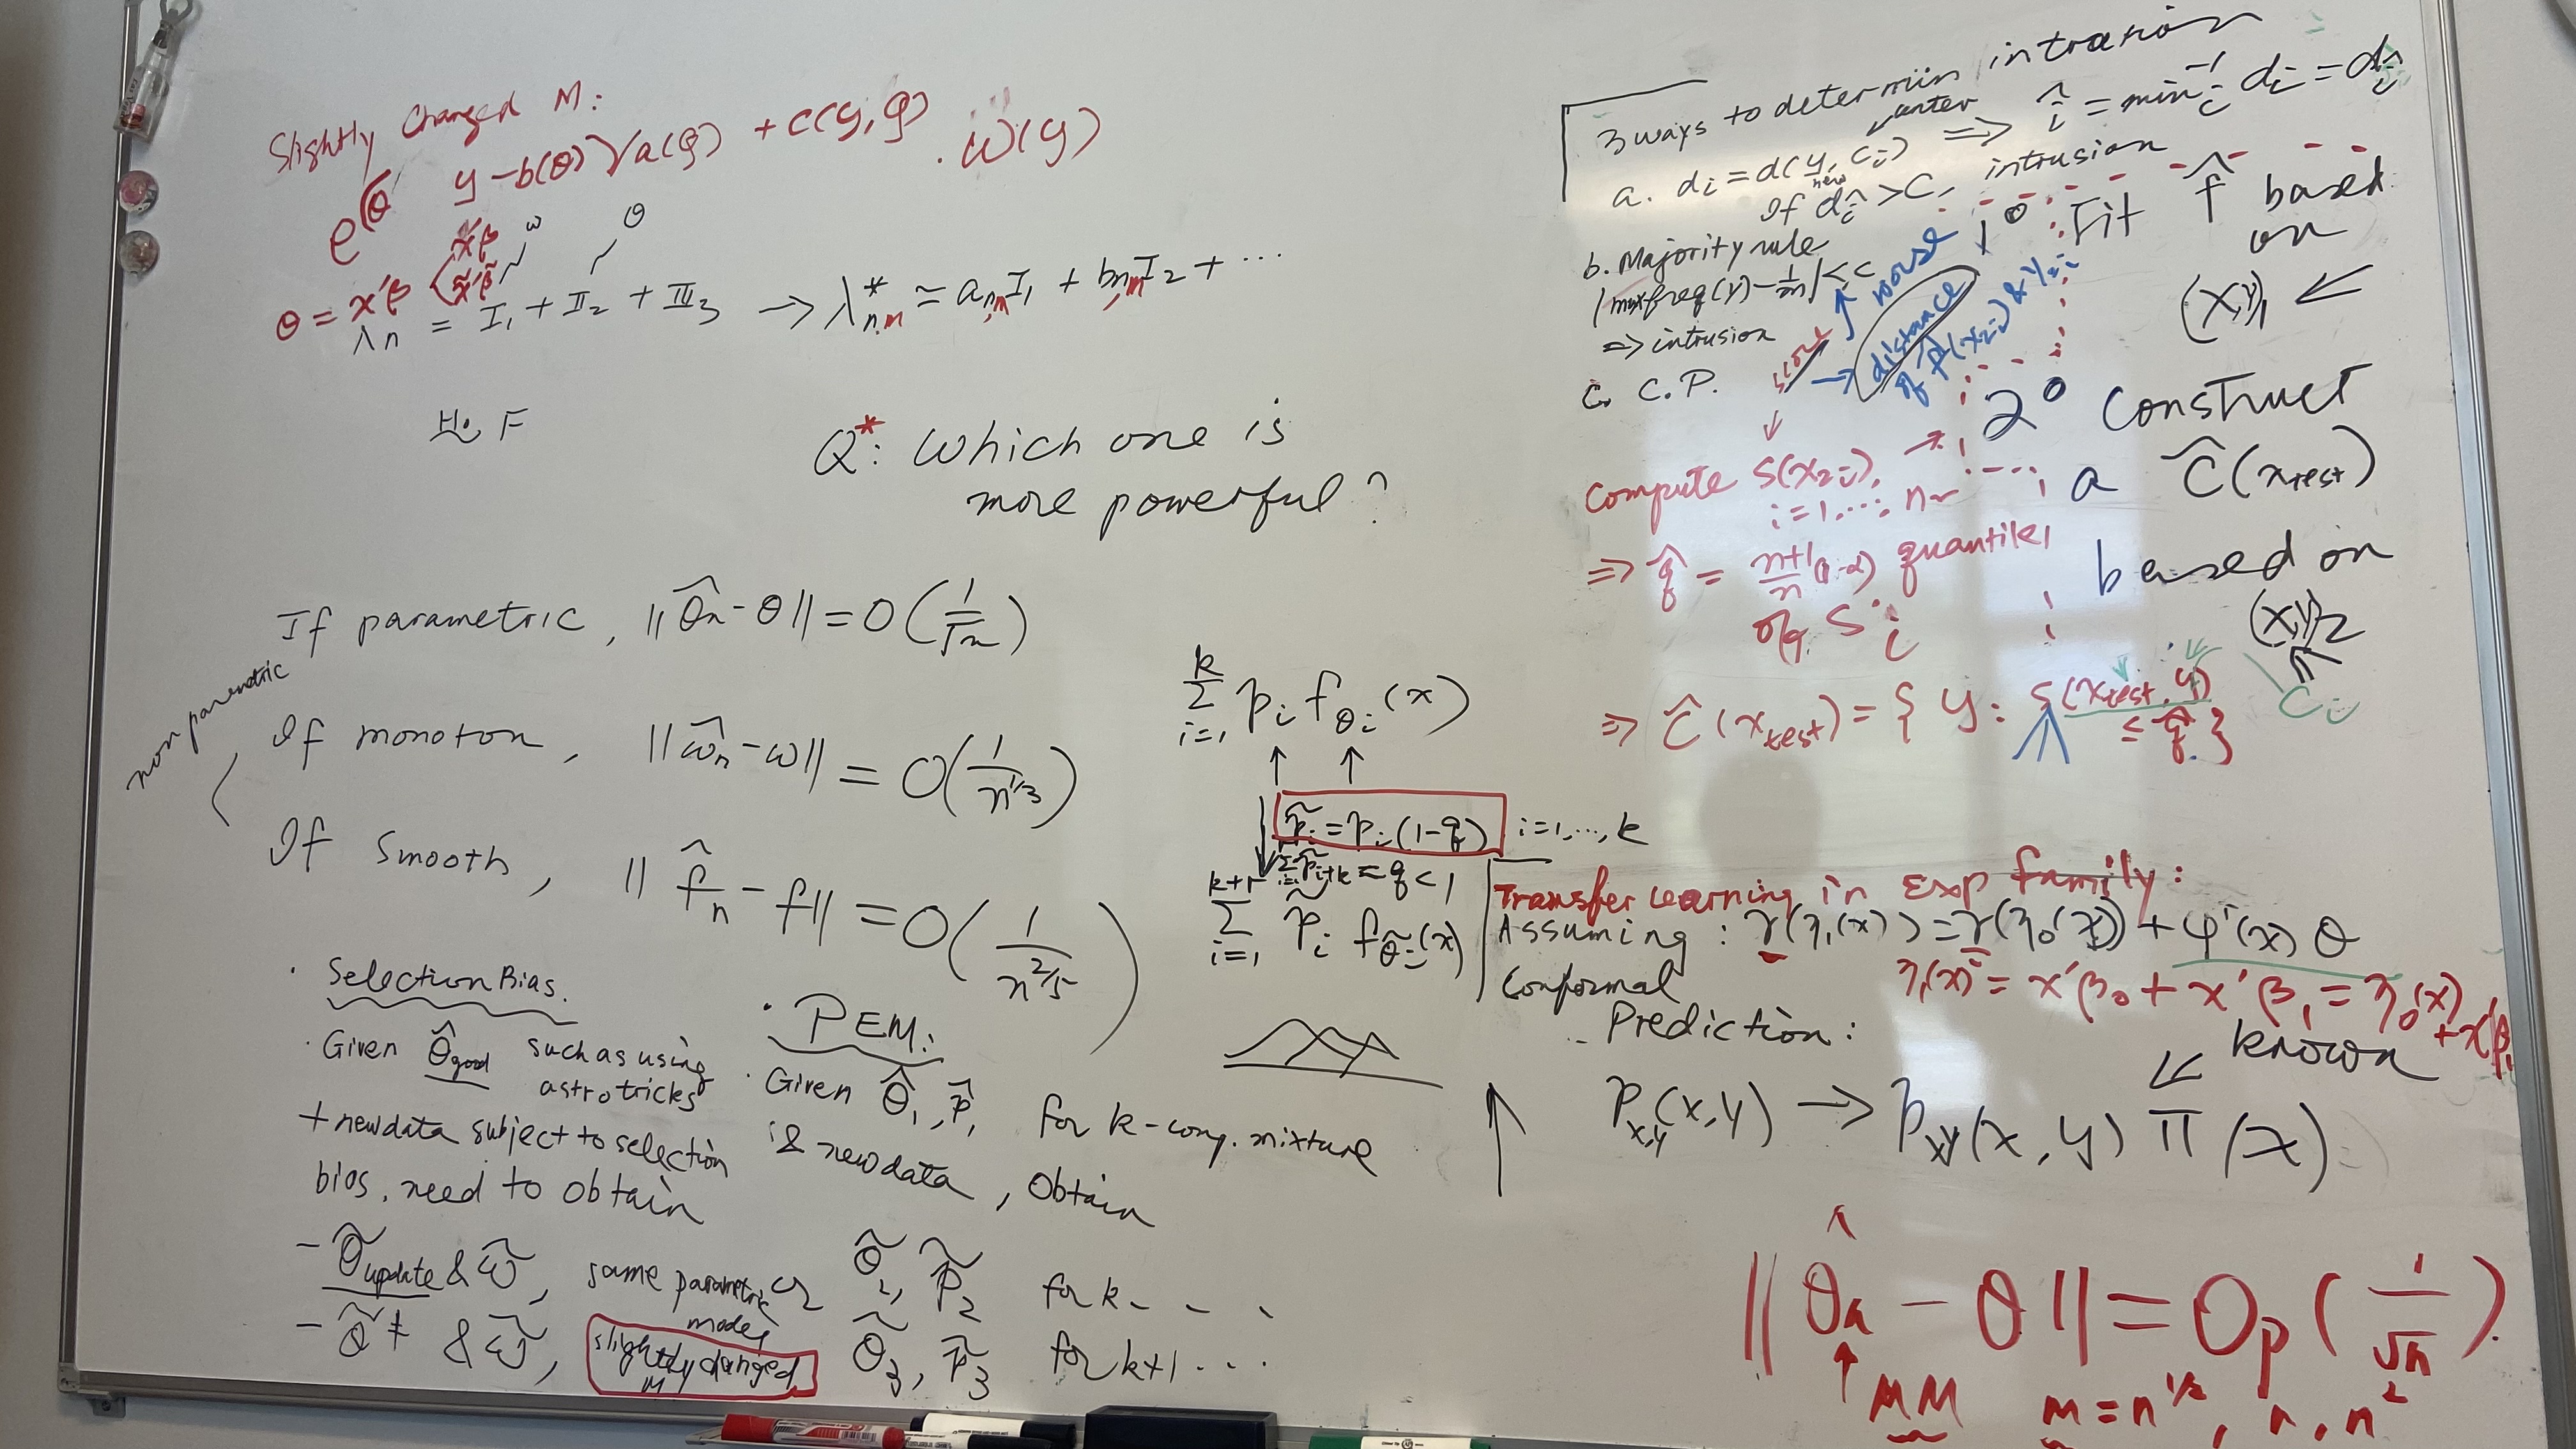 Slightly Changed M:
e^(θ y-b(θ))/a(φ) + c(y,φ) . ω(y)
θ = x'β
x'β
x̃'β̃
ω
θ
λn = I₁ + II₂ + III₃ → λ*n,m ≈ an,m I₁ + bn,m I₂ + ...
H₀ F
Q*: Which one is
more powerful?
If parametric, ||θ̂n - θ|| = O(1/√n)
non parametric
If monoton, ||ω̂n - ω|| = O(1/n^1/3)
If smooth, ||f̂n - f|| = O(1/n^2/5)
· Selection Bias.
· Given θ̂good such as using
astrotricks
+ new data subject to selection
bias, need to obtain
- θ̃update & ω̃, same parametric
model
- θ̃* & ω̃, slightly changed
M
· PEM:
· Given θ̂₁, p̂₁ for k-comp. mixture
& new data, Obtain
θ̃₂, p̃₂ for k- - -
θ̃₃, p̃₃ for k+1 ...
k
Σ pi fθi(x)
i=1
p̃i = pi(1-q) i=1,...,k
= q < 1
Σ p̃i fθ̃i(x)
i=1
3 ways to determin intrusion
a. di = d(ynew, ci) ⟹ î = min⁻¹i di = dî
center
If dî > C, intrusion
b. Majority rule
|maxfreq(y) - 1/m| < c
⟹ intrusion
c. C.P.
score
→ distance
of f̂(x2i) & y2i
1° Fit f̂ based
on
(X,Y)₁
2° Construct
a Ĉ(xtest)
based on
(X,Y)₂
Compute S(x2i),
i=1,...,n
⟹ q̂ = n+1/n (1-α) quantile
of Si
⟹ Ĉ(xtest) = { y: S(xtest, y)
≤ q̂ }
Ci
Transfer Learning in Exp family:
Assuming: γ(η₁(x)) = γ(η₀(x)) + φ'(x) θ
η₁(x) = x'β₀ + x'β₁ = η₀(x)
+ x'β₁
Conformal
Prediction:
known
Px,y(x,y) → Pxy(x,y) π(x)
||θ̂n - θ|| = Op(1/√n).
MM
m = n^1/2, n, n²